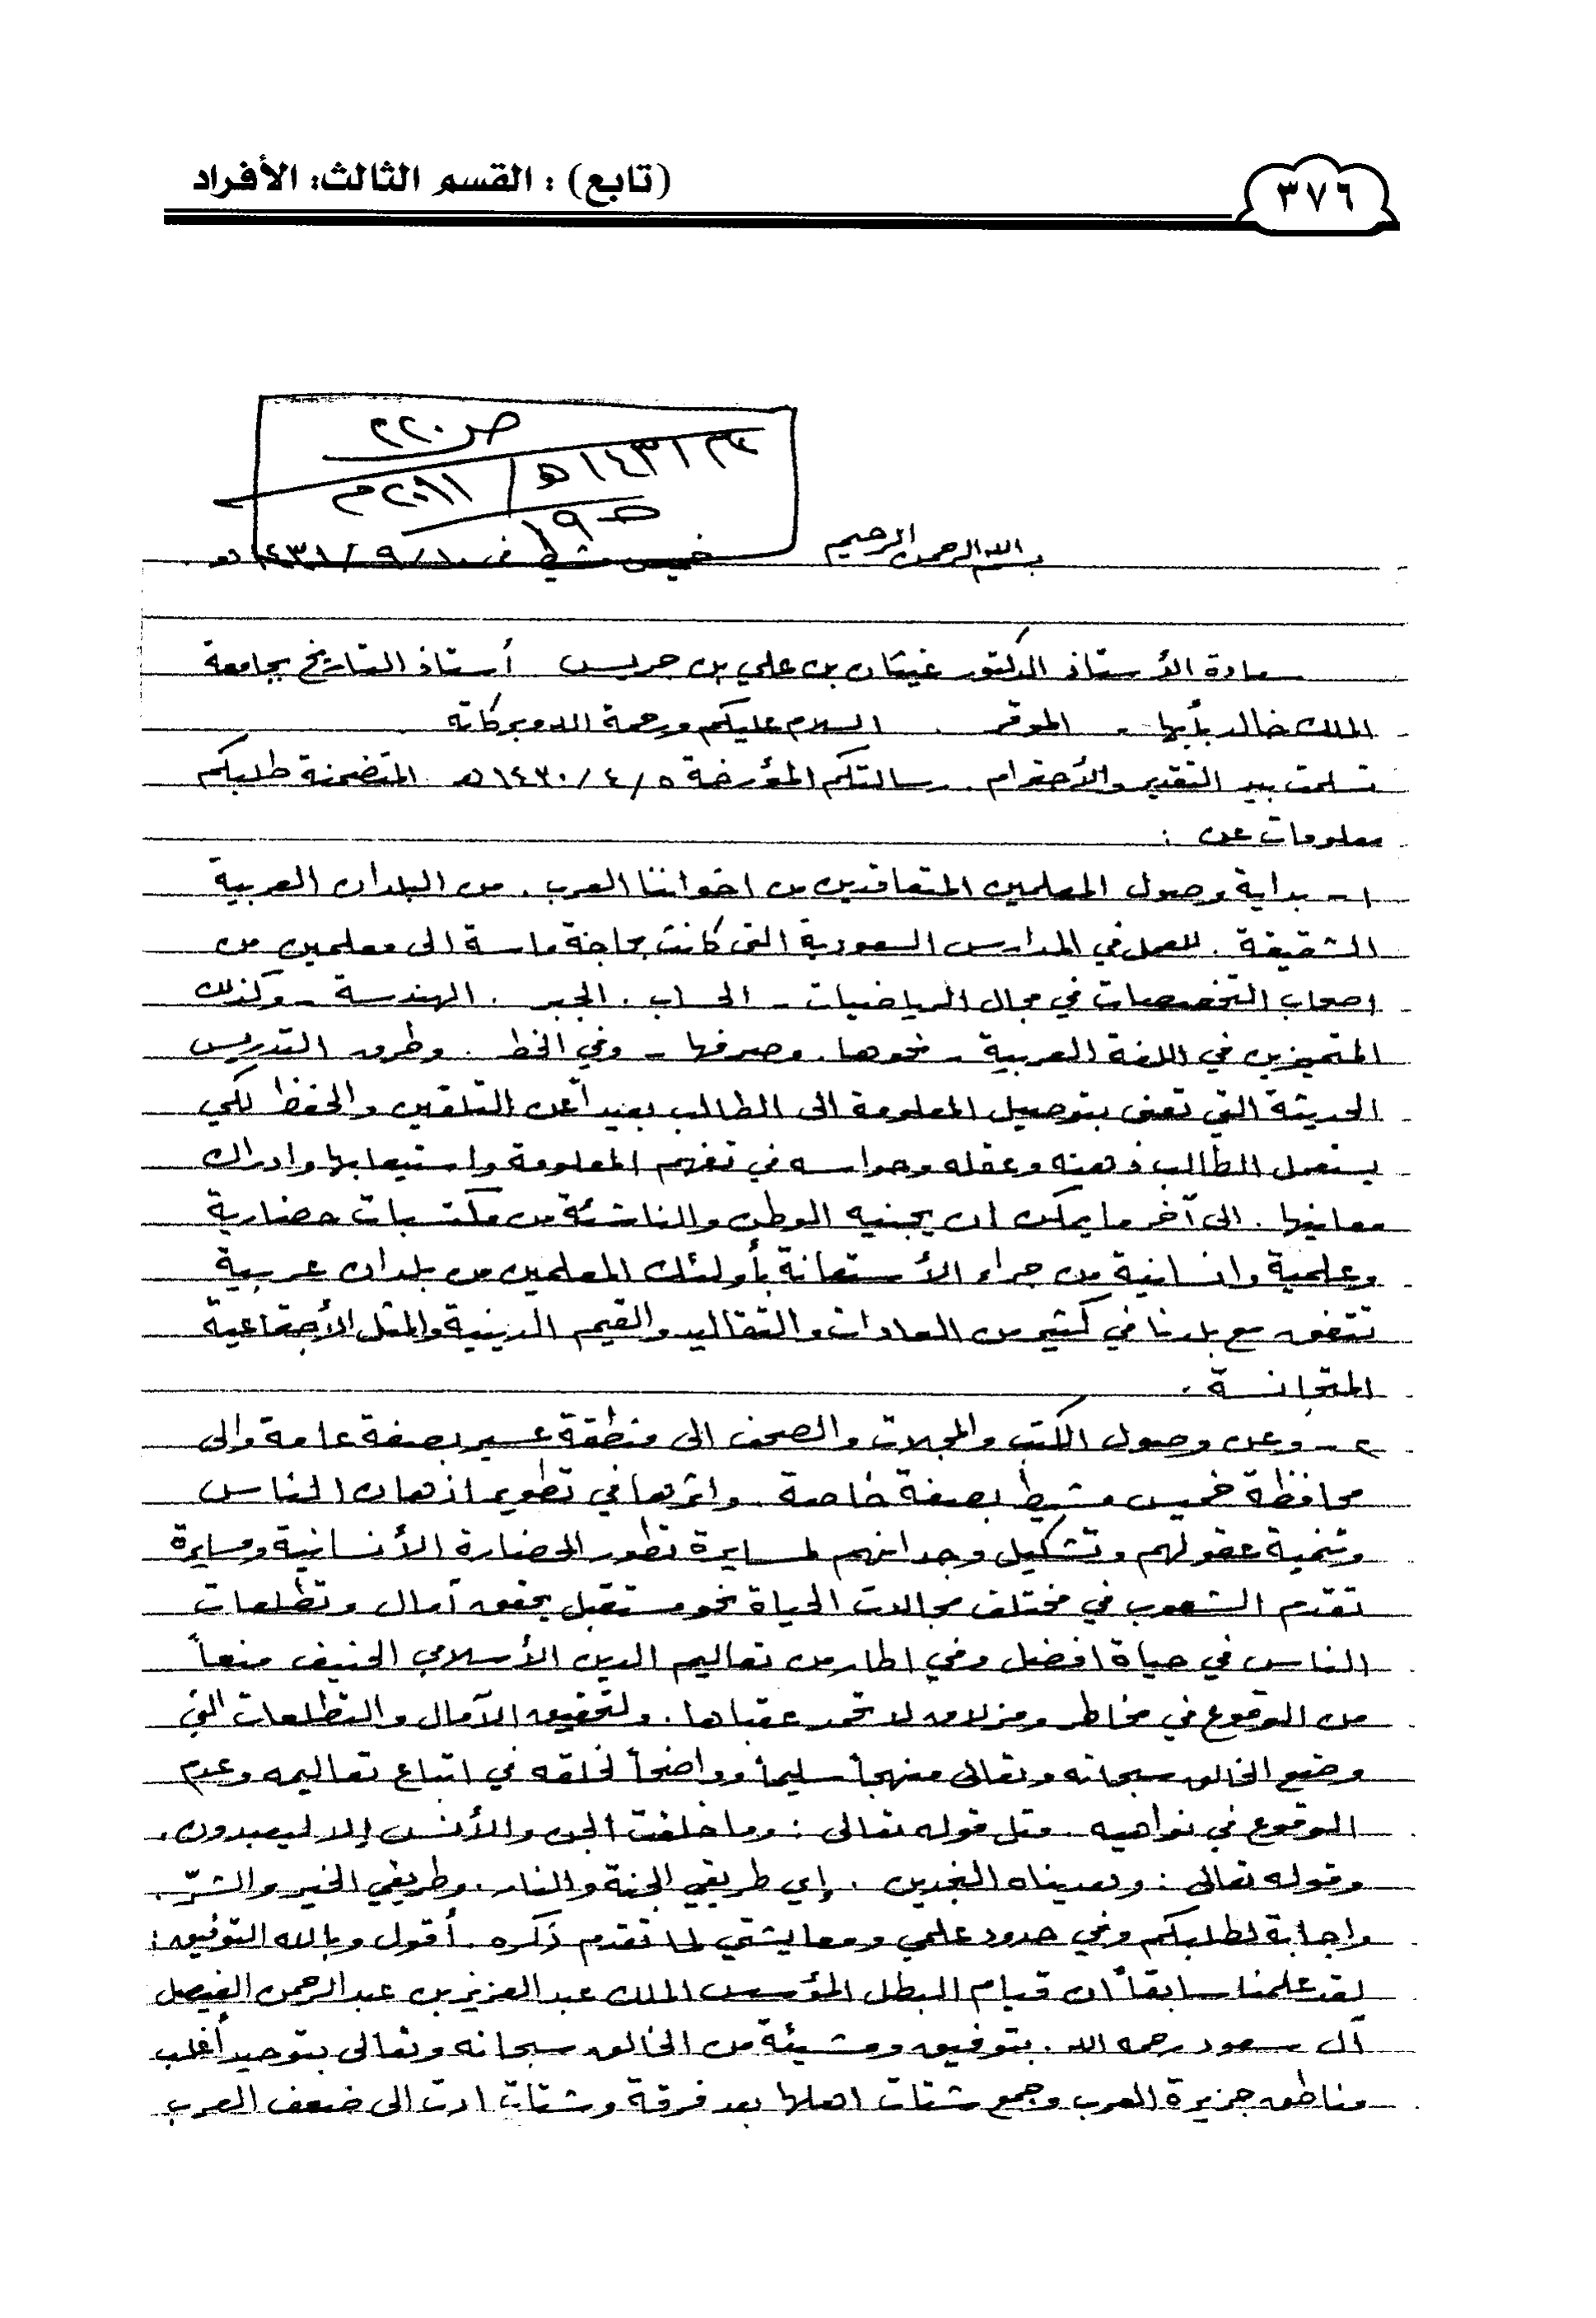 ٣٧٦
(تابع) : القسم الثالث: الأفراد
ص ٢٢٠
١٤٣١هـ / ٢٠١١م
ص ١٩
بسم الله الرحمن الرحيم
خميس مشيط في ١٠/٩/١٤٣١هـ
سعادة الأستاذ الدكتور غيثان بن علي بن جريس . أستاذ التاريخ بجامعة
الملك خالد بأبها - الموقر . السلام عليكم ورحمة الله وبركاته
تسلمت بيد التقدير والأحترام . رسالتكم المؤرخة ٥/٤/١٤٣٠هـ . المتضمنة طلبكم
معلومات عن :
١ - بداية وصول المعلمين المتعاقدين من اخواننا العرب . من البلدان العربية
الشقيقة . للعمل في المدارس السعودية التي كانت بحاجة ماسة الى معلمين من
اصحاب التخصصات في مجال الرياضيات - الحساب . الجبر . الهندسة - وكذلك
المتميزين في اللغة العربية - نحوها . وصرفها - وفي الخط . وطرق التدريس
الحديثة التي تعنى بتوصيل المعلومة الى الطالب بعيداً عن التلقين والحفظ لكي
يستعمل الطالب ذهنه وعقله وحواسه في تفهم المعلومة واستيعابها وادراك
معانيها . الى آخر ما يمكن ان يجنيه الوطن والناشئة من مكتسبات حضارية
وعلمية وانسانية من جراء الأستعانة بأولئك المعلمين من بلدان عربية
تتفق مع بلدنا في كثير من العادات والتقاليد والقيم الدينية والمثل الأجتماعية
المتجانسة .
٢ - وعن وصول الكتب والمجلات والصحف الى منطقة عسير بصفة عامة والى
محافظة خميس مشيط بصفة خاصة . واثرها في تطوير اذهان الناس
وتنمية عقولهم وتشكيل وجدانهم لمسايرة تطور الحضارة الأنسانية ومسايرة
تقدم الشعوب في مختلف مجالات الحياة نحو مستقبل يحقق آمال وتطلعات
الناس في حياة افضل وفي اطار من تعاليم الدين الأسلامي الحنيف منعاً
من الوقوع في مخاطر ومزلاق لا تحمد عقباها . ولتحقيق الآمال والتطلعات التي
وضع الخالق سبحانه وتعالى منهجاً سليماً وواضحاً لخلقه في اتباع تعاليمه وعدم
الوقوع في نواهيه . مثل قوله تعالى : وما خلقت الجن والأنس إلا ليعبدون .
وقوله تعالى : وهديناه النجدين . إي طريقي الجنة والنار . وطريقي الخير والشرّ .
واجابة لطلبكم وفي حدود علمي ومعايشتي لما تقدم ذكره . أقول وبالله التوفيق :
لقد علمنا سابقاً ان قيام البطل المؤسس الملك عبد العزيز بن عبد الرحمن الفيصل
آل سعود رحمه الله . بتوفيق ومشيئة من الخالق سبحانه وتعالى بتوحيد أغلب
مناطق جزيرة العرب وجمع شتات اهلها بعد فرقة وشتات ادت الى ضعف العرب